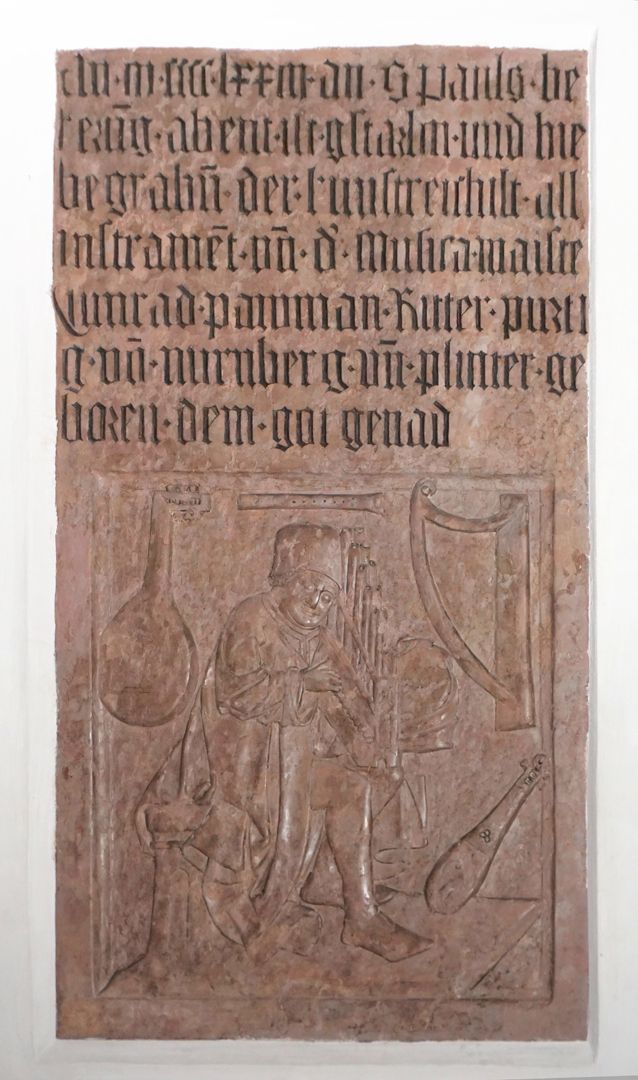 An · m · cccc · lxxiii · an · S pauls · be
kerūg · abent · ist · gstarbn · und hie
begrabn̄ · der · kunstreichist · all
instramēt · vn̄ · d' · Musica · maiste
Cunrad · pawman · Ritter · purti
g · vō · nurnberg · vn̄ · plinter · ge
boren · dem · got genad